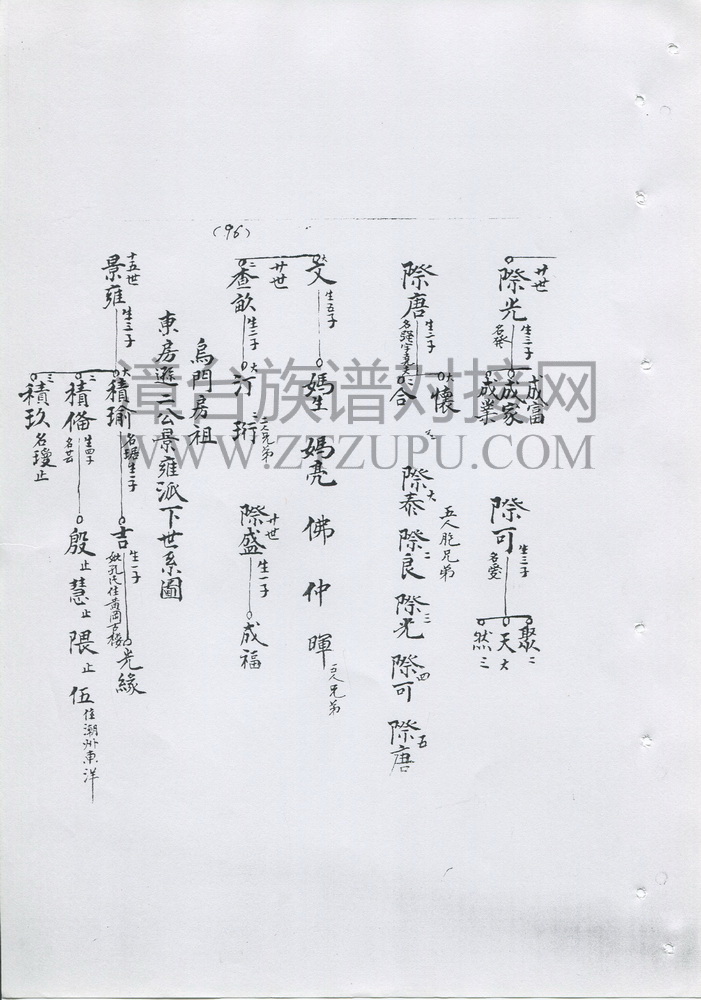 (96)
廿世
際光 名發 生三子
成富
成家
成業
際可 名愛 生三子
聚 二
天 大
然 三
際唐 生二子
懷 大
合 二
五人胞兄弟
際泰 大
際良 二
際光 三
際可 四
際唐 五
廿世
文 大 生五子
媽生 媽亮 佛 仲 暉 五人兄弟
畝 生二子
汀 大
珩 二 二人兄弟
廿世
際盛 生一子
成福
烏門房祖
東房遜二公景雍派下世系圖
十五世
景雍 生三子
積瑜 大 生一子
吉 生一子
妣孔氏住黃岡古樓
光緣
積俻 二 名芸 生四子
殷 止 慧 止 隈 止 伍 住潮州東洋
積玖 三 名瓊止
漳台族谱对接网
WWW.ZTZUPU.COM